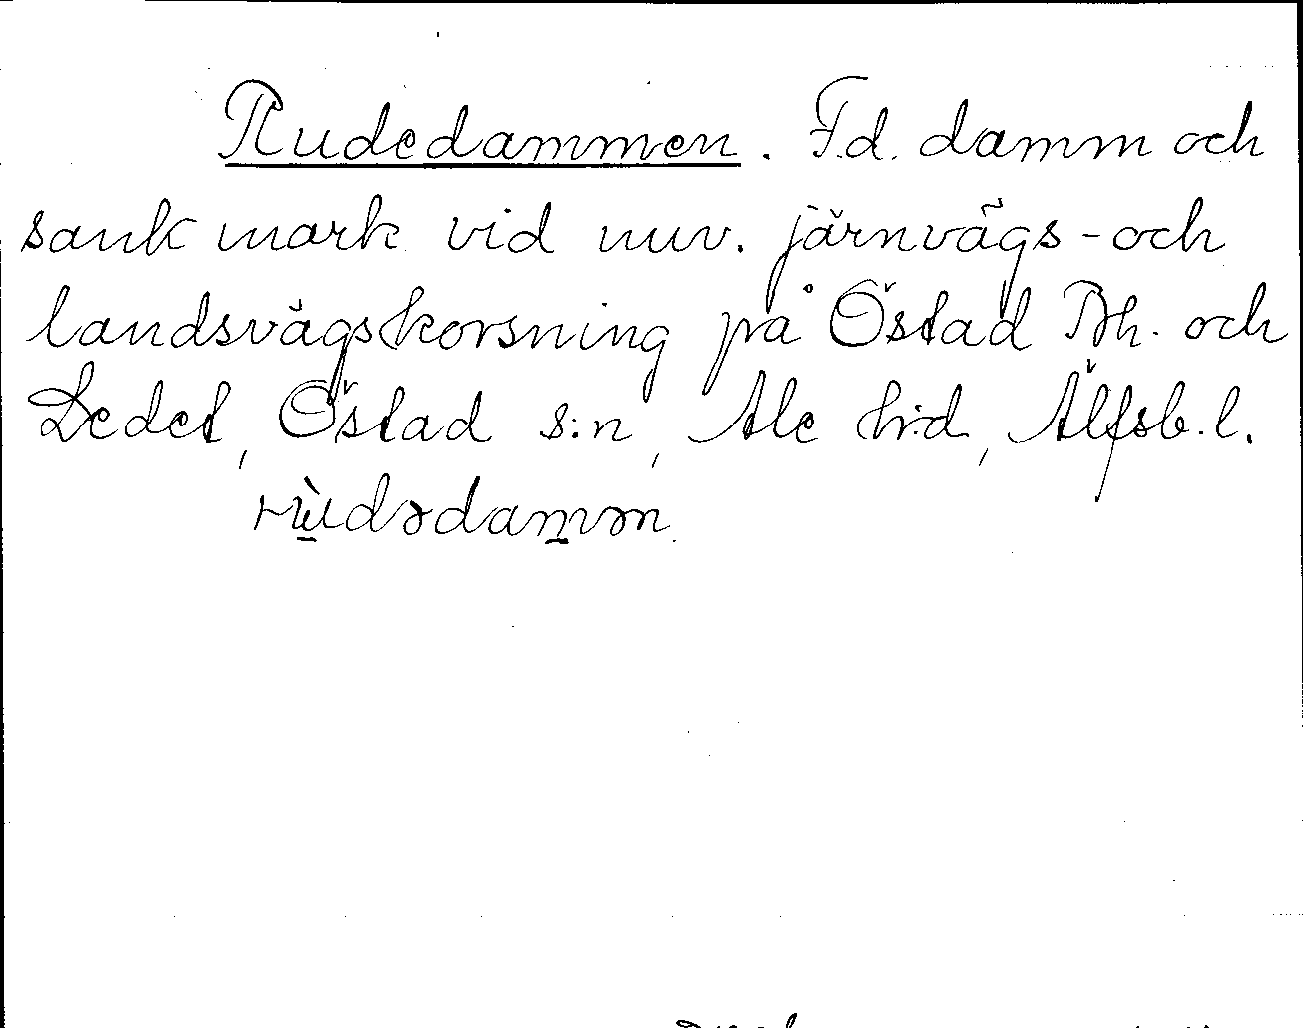 Rudedammen. F.d. damm och
sank mark vid nuv. järnvägs- och
landsvägskorsning på Östad Bh. och
Dedet, Östad s:n, Ale h:d, Älfsb. l.
rùdədamən.